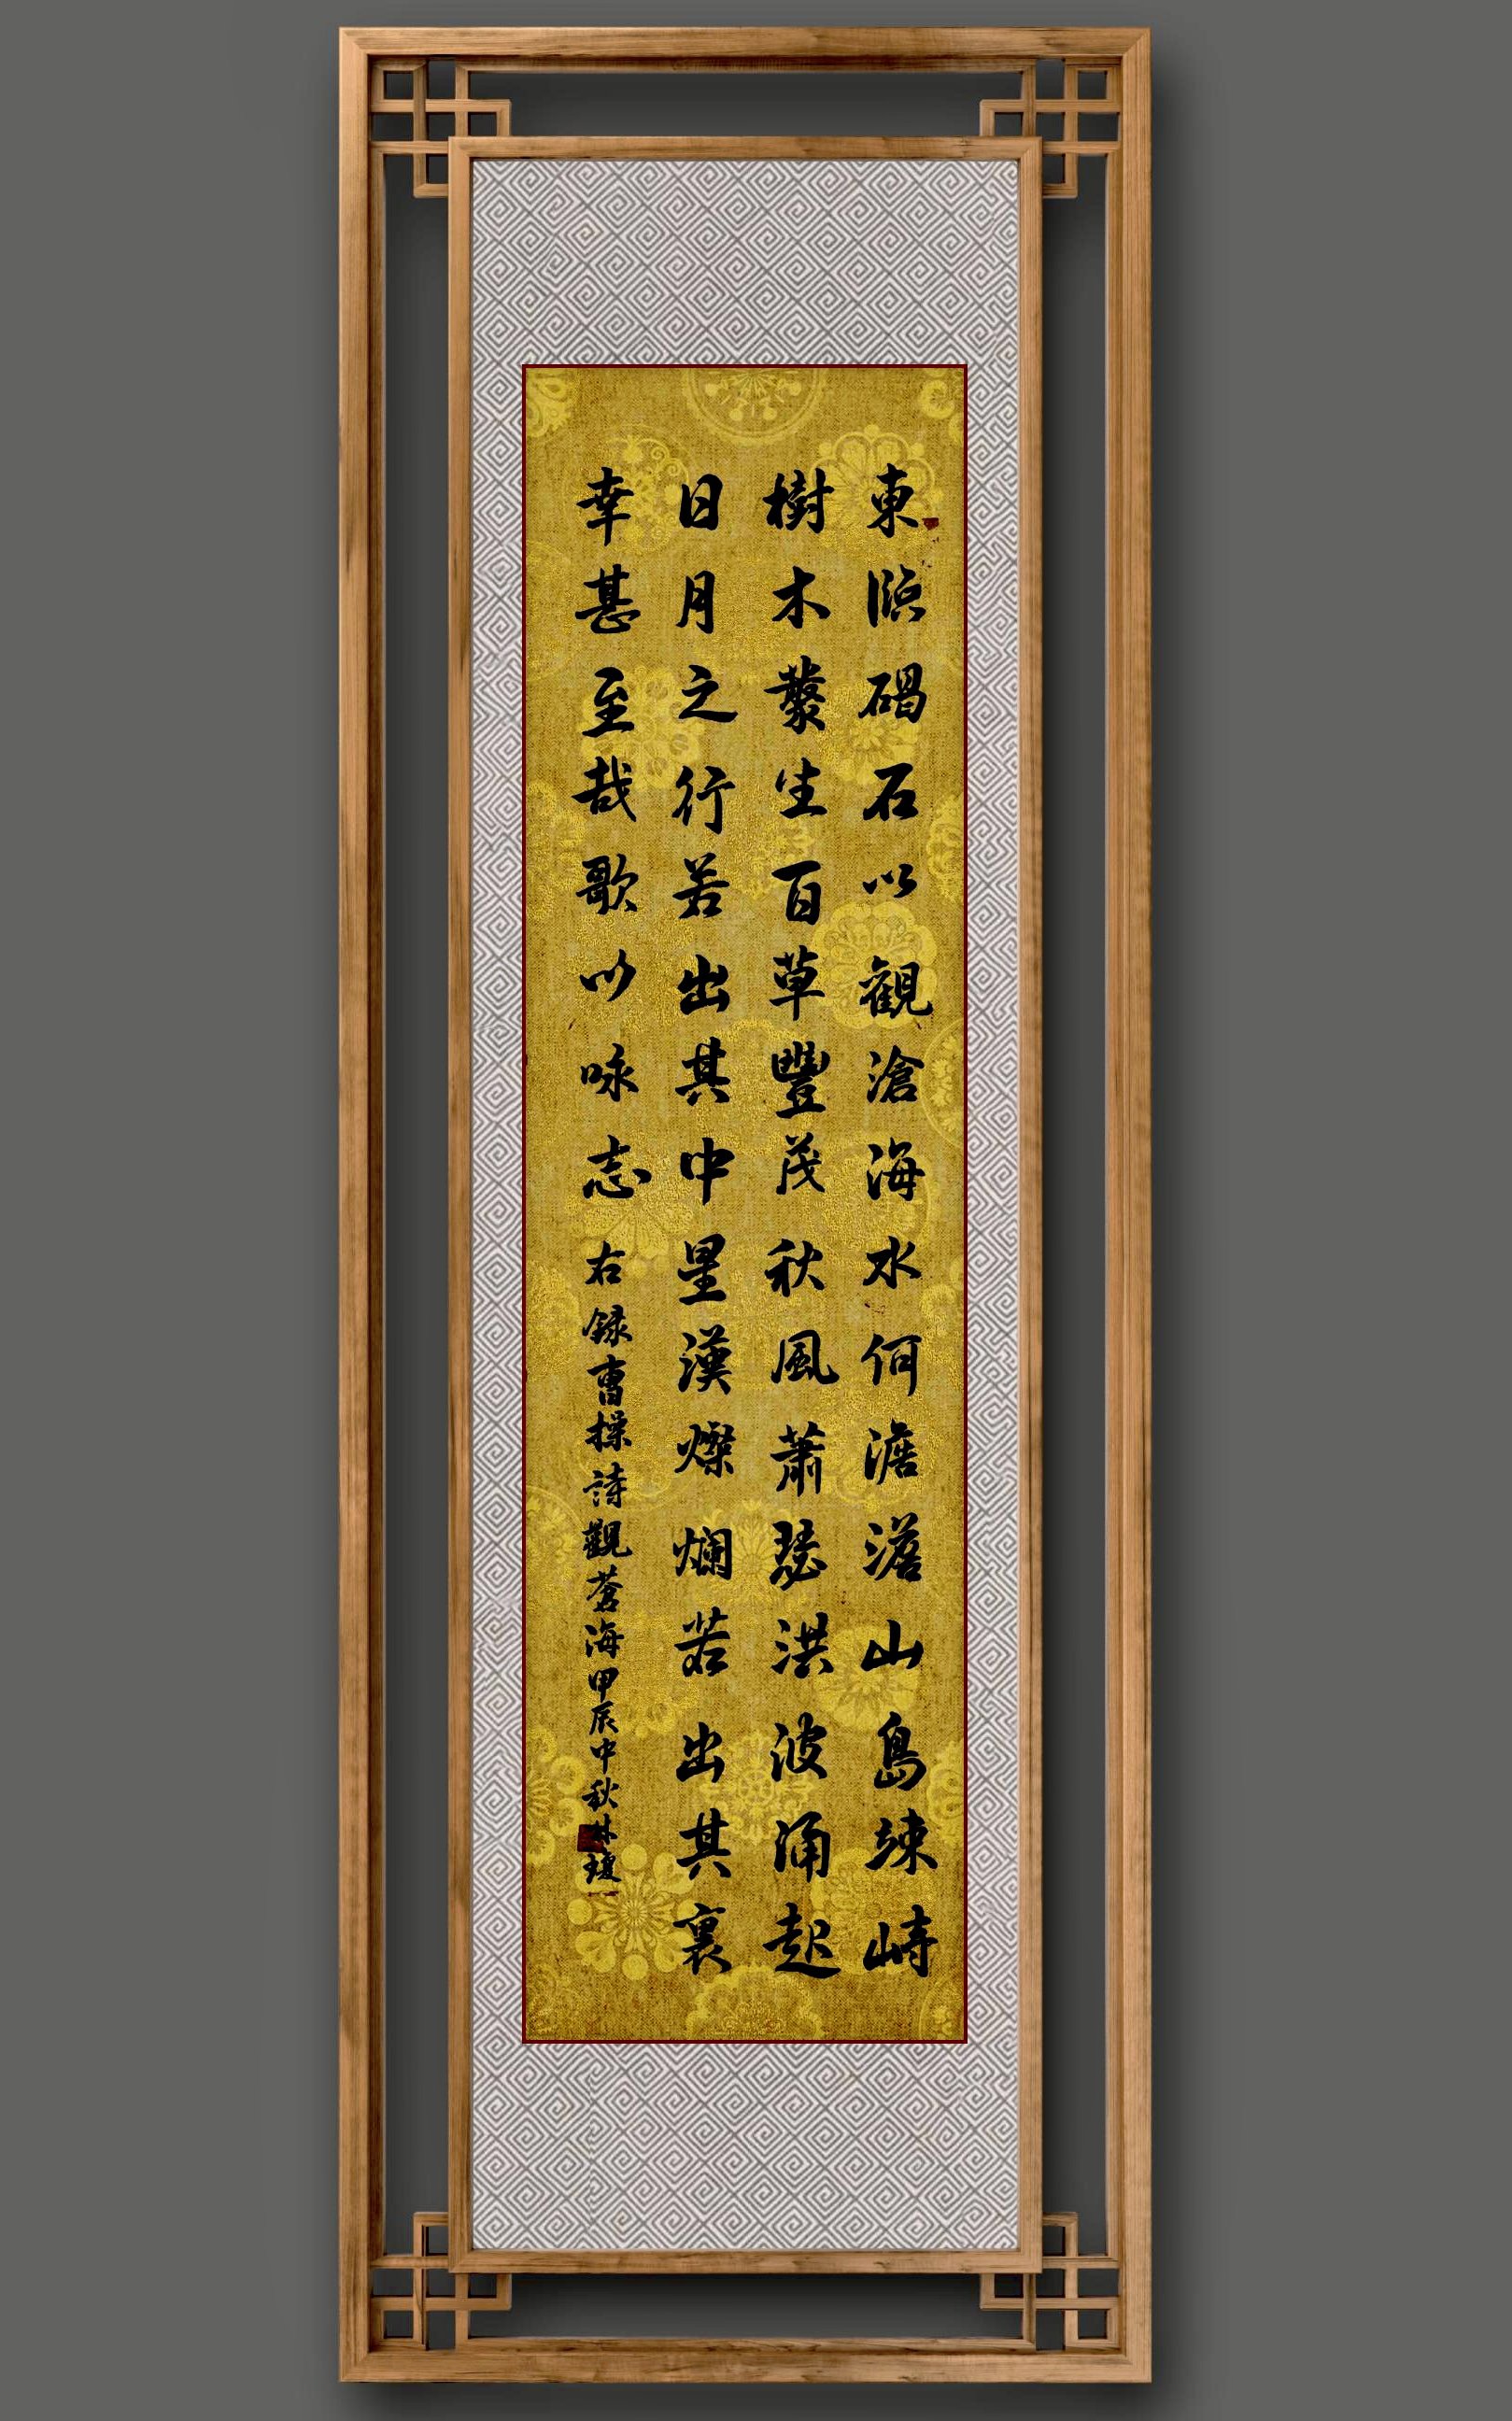 東臨碣石以觀滄海水何澹澹山島竦峙
樹木叢生百草豐茂秋風蕭瑟洪波涌起
日月之行若出其中星漢燦爛若出其裏
幸甚至哉歌以咏志右録曹操詩觀蒼海甲辰中秋林瓊